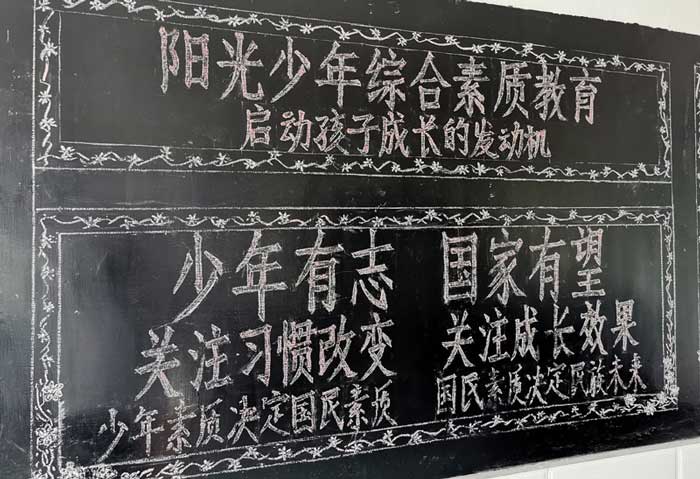 阳光少年综合素质教育
启动孩子成长的发动机
少年有志 国家有望
关注习惯改变 关注成长效果
少年素质决定国民素质 国民素质决定民族未来